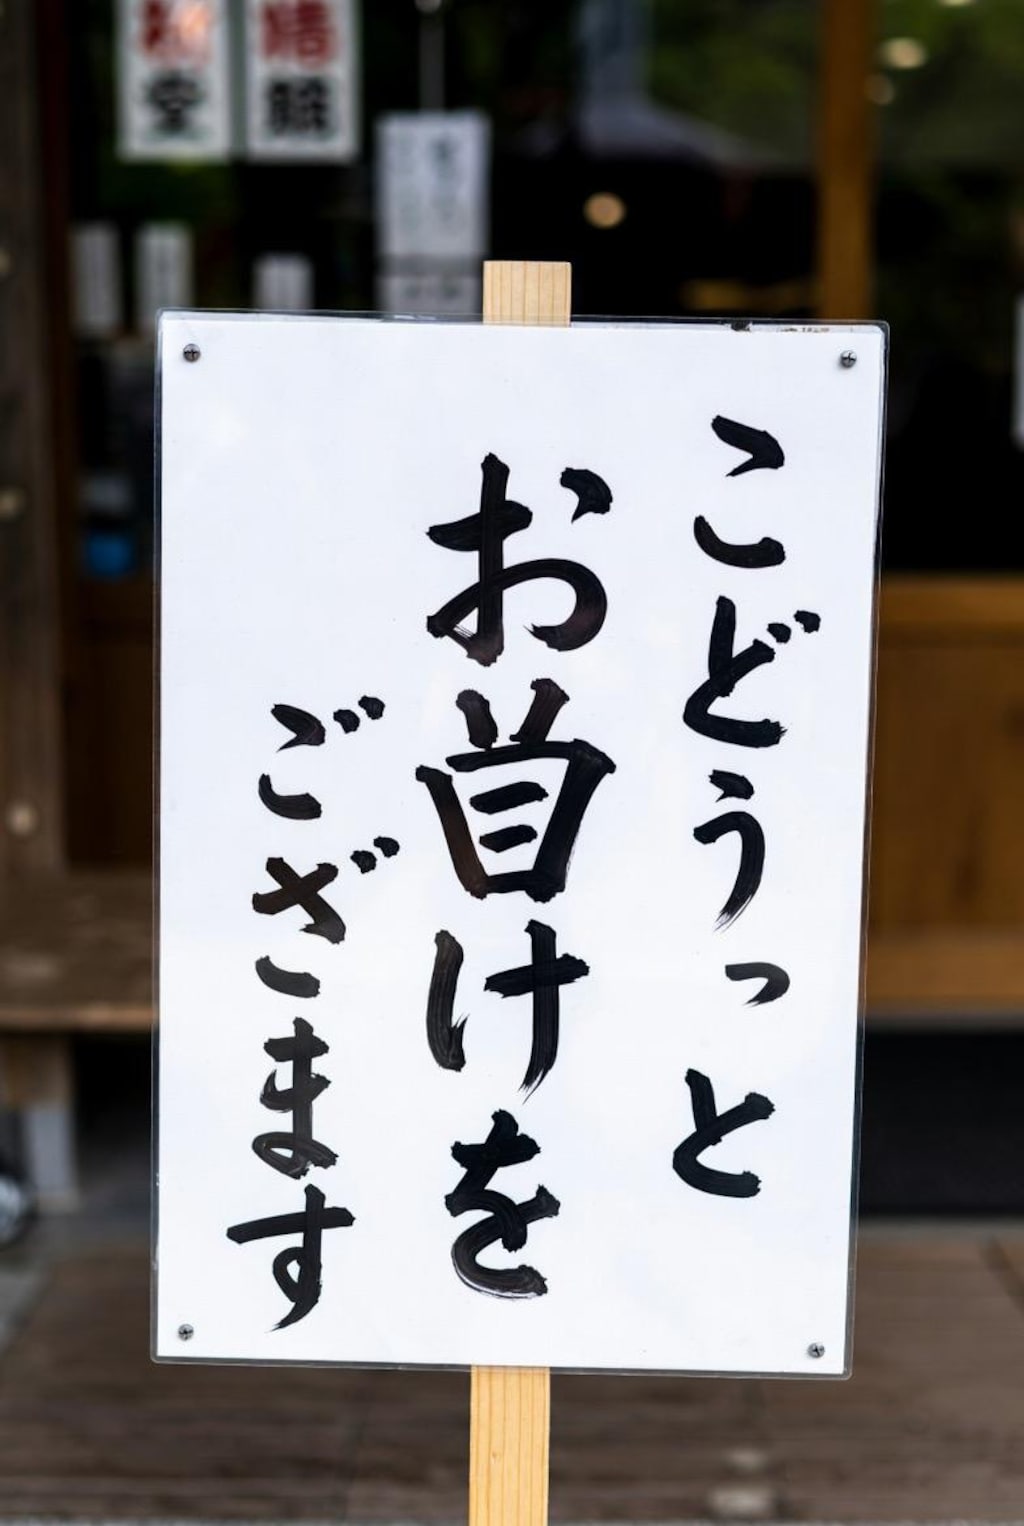 こどうっと
お首けを
ござます